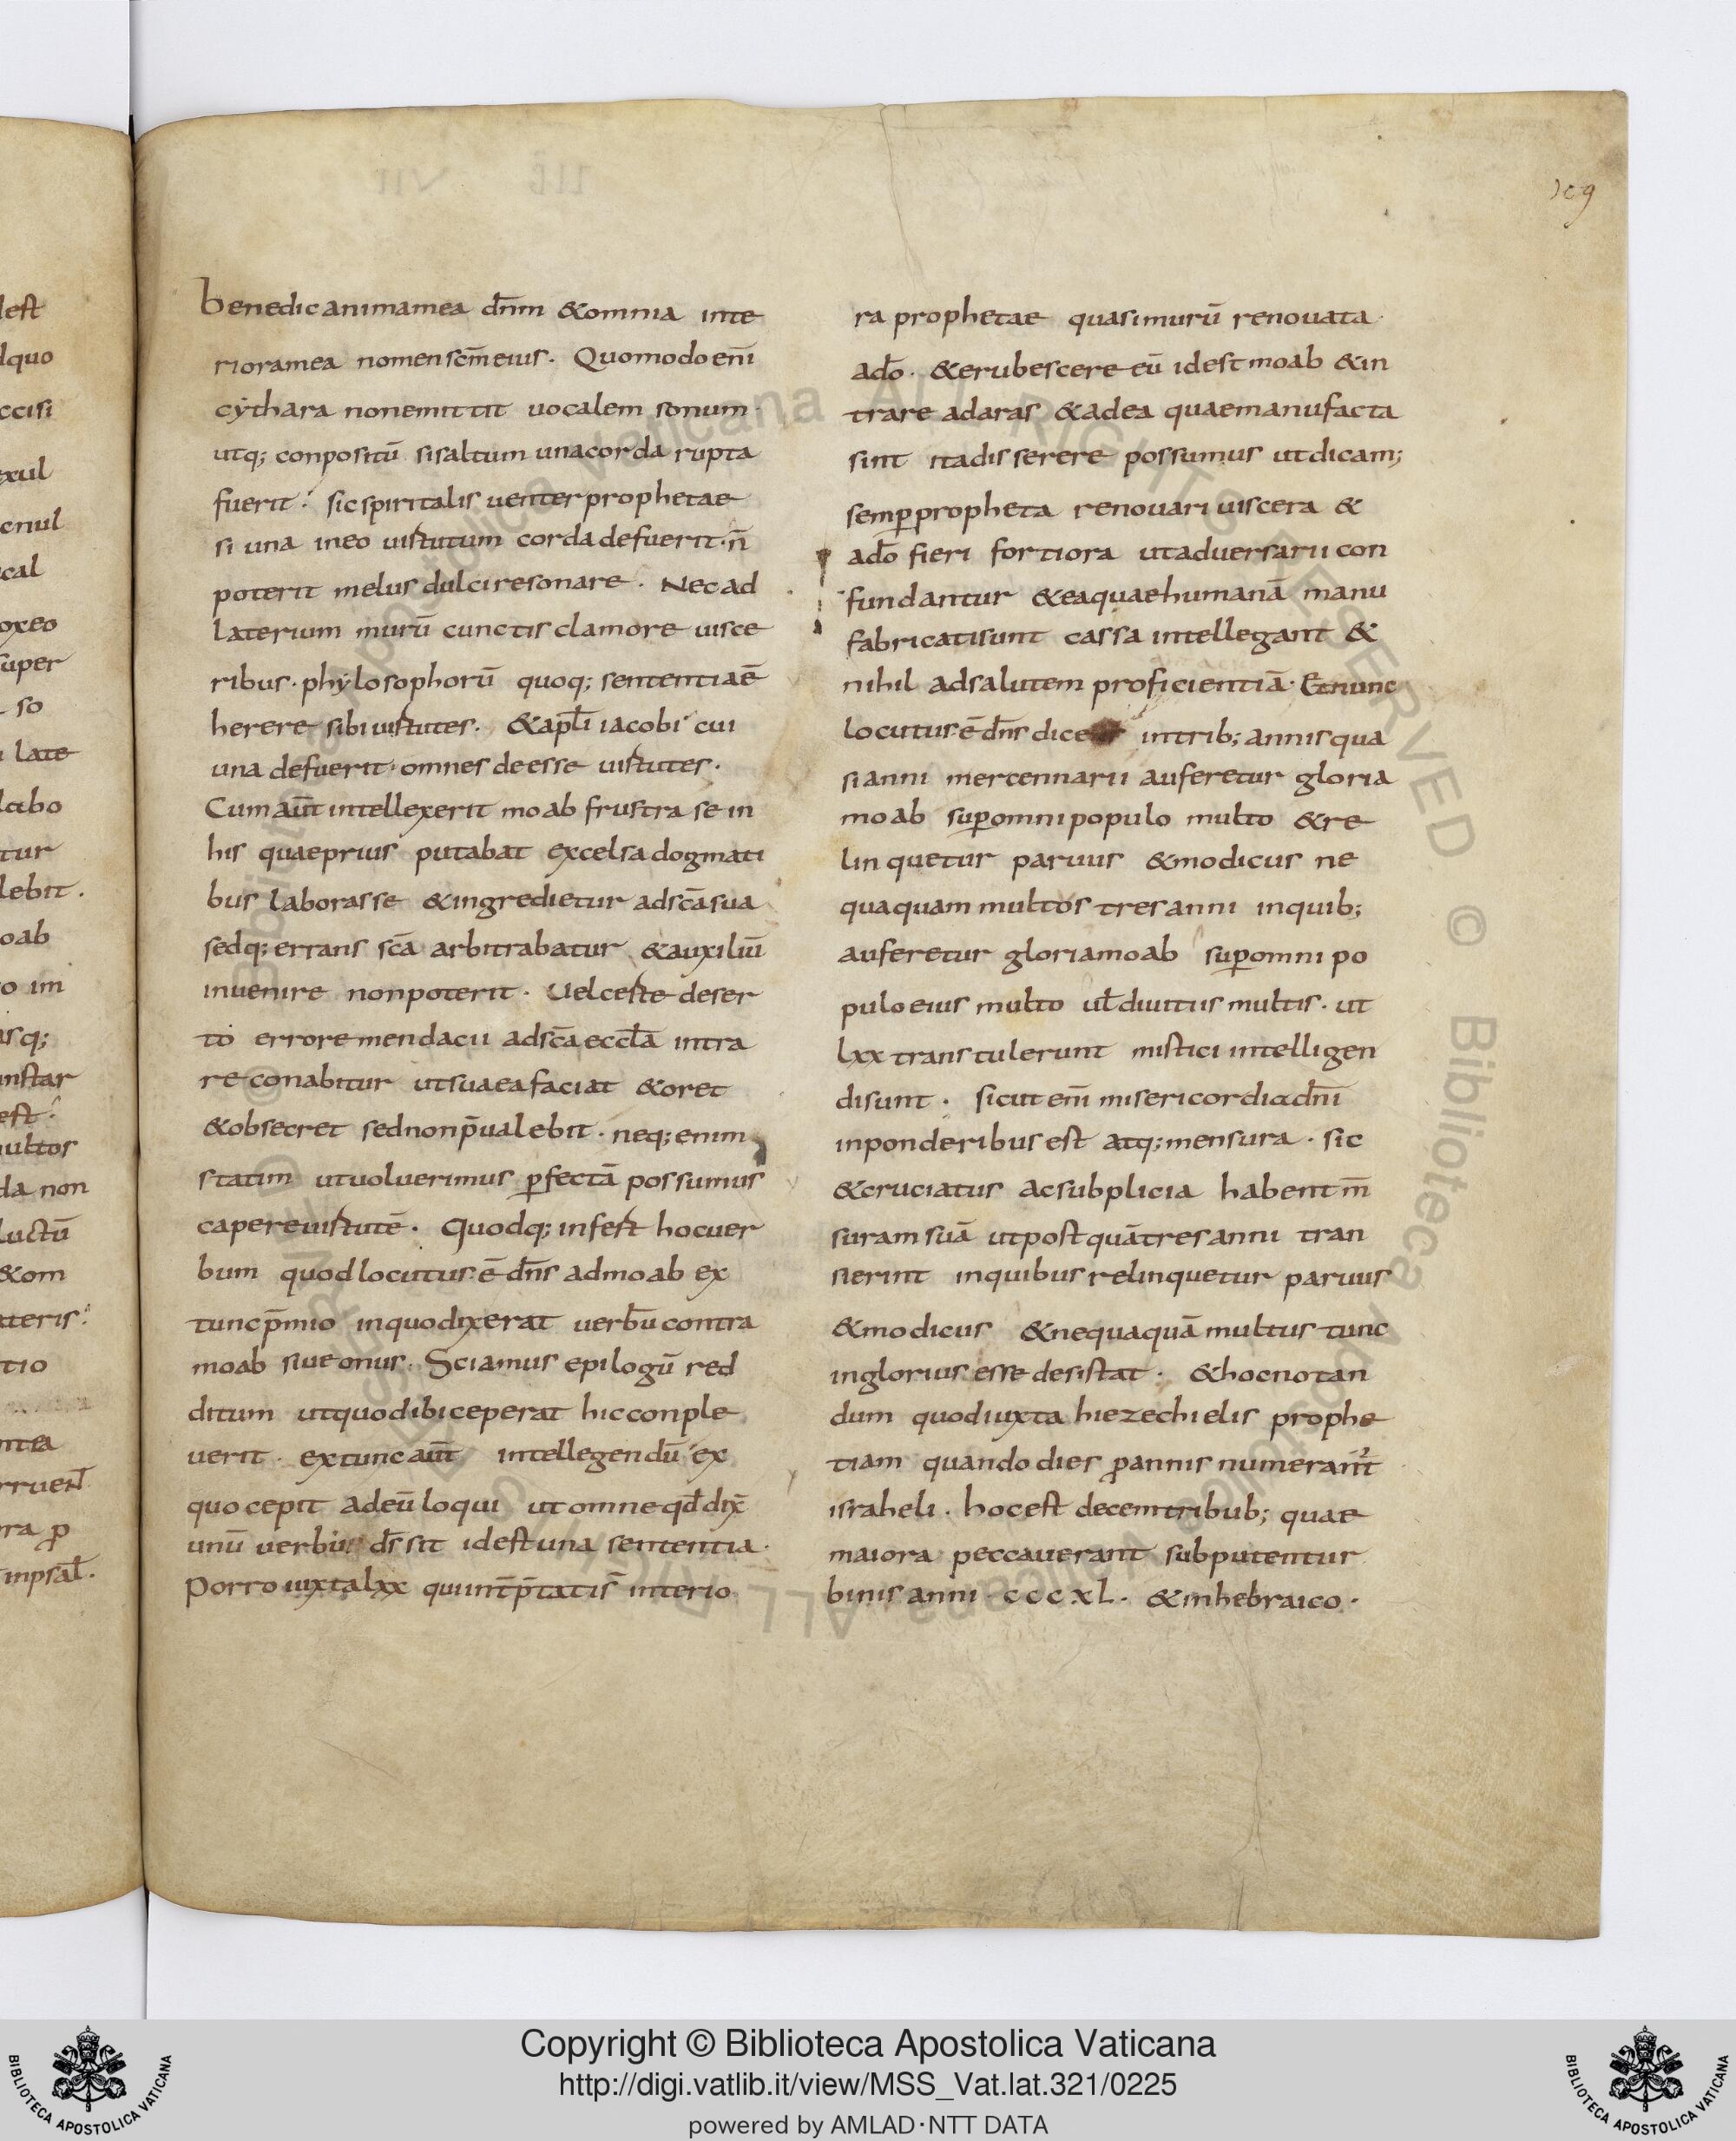 109
benedic anima mea dn̄m & omnia inte
riora mea nomen sc̄m eius. Quomodo enī
cythara non emittit uocalem sonum.
utq; conpositū si saltum una corda rupta
fuerit: sic spiritalis uenter prophetae
si una in eo uirtutum corda defuerit. n̄
poterit melus dulci resonare. Nec ad
laterium murū cunctis clamore uisce
ribus. phylosophorū quoq; sententia ē
herere sibi uirtutes. & apłi iacobi cui
una defuerit. omnes deesse uirtutes.
Cum aūt intellexerit moab frustra se in
his quae prius putabat excelsa dogmati
bus laborasse & ingredietur ad sc̄a sua
sedq; errans sc̄a arbitrabatur & auxiliū
inuenire non poterit. Uel certe deser
to errore mendacii ad sc̄a eccła intra
re conabitur ut sua ea faciat & oret
& obsecret sed non p̄ualebit. neq; enim
statim ut uoluerimus ꝑfectā possumus
capere uirtutē. Quodq; infert hoc uer
bum quod locutus ē dn̄s ad moab ex
tunc p̄mio in quo dixerat uerbū contra
moab siue onus. Sciamus epilogū red
ditum ut quod ibi ceperat hic conple
uerit. ex tunc aūt intellegendū ex
quo cepit ad eū loqui ut omne qđ dix̄
unū uerbū dī sit id est una sententia.
Porro iuxta lxx qui int̄p̄tati s̄ interio
ra prophetae quasi murū renouata
a dō. & erubescere eū id est moab & in
trare ad aras & ad ea quae manu facta
sint ita disserere possumus ut dicam;
semꝑ propheta renouari uiscera &
a dō fieri fortiora ut aduersarii con
fundantur & ea quae humanā manu
fabricati sunt cassa intellegant &
nihil ad salutem proficientiā. Et nunc
locutus ē dn̄s dice in trib; annis qua
si anni mercennarii auferetur gloria
moab suꝑ omni populo multo & re
linquetur paruus & modicus ne
quaquam multos tres anni in quib;
auferetur gloria moab suꝑ omni po
pulo eius multo uł diuitiis multis. ut
lxx transtulerunt mistici intelligen
di sunt. sicut enī misericordia dn̄i
in ponderibus est atq; mensura. sic
& cruciatus ac subplicia habent m̄
suram suā ut postquā tres anni tran
sierint in quibus relinquetur paruus
& modicus & nequaquā multus tunc
inglorius esse desistat. & hoc notan
dum quod iuxta hiezechielis prophe
tiam quando dies ꝓ annis numerant̄
israheli. hoc est decem tribub; quae
maiora peccauerant subputentur
binis anni cccxl. & in hebraico.
Copyright © Biblioteca Apostolica Vaticana
http://digi.vatlib.it/view/MSS_Vat.lat.321/0225
powered by AMLAD·NTT DATA
BIBLIOTECA APOSTOLICA VATICANA
BIBLIOTECA APOSTOLICA VATICANA